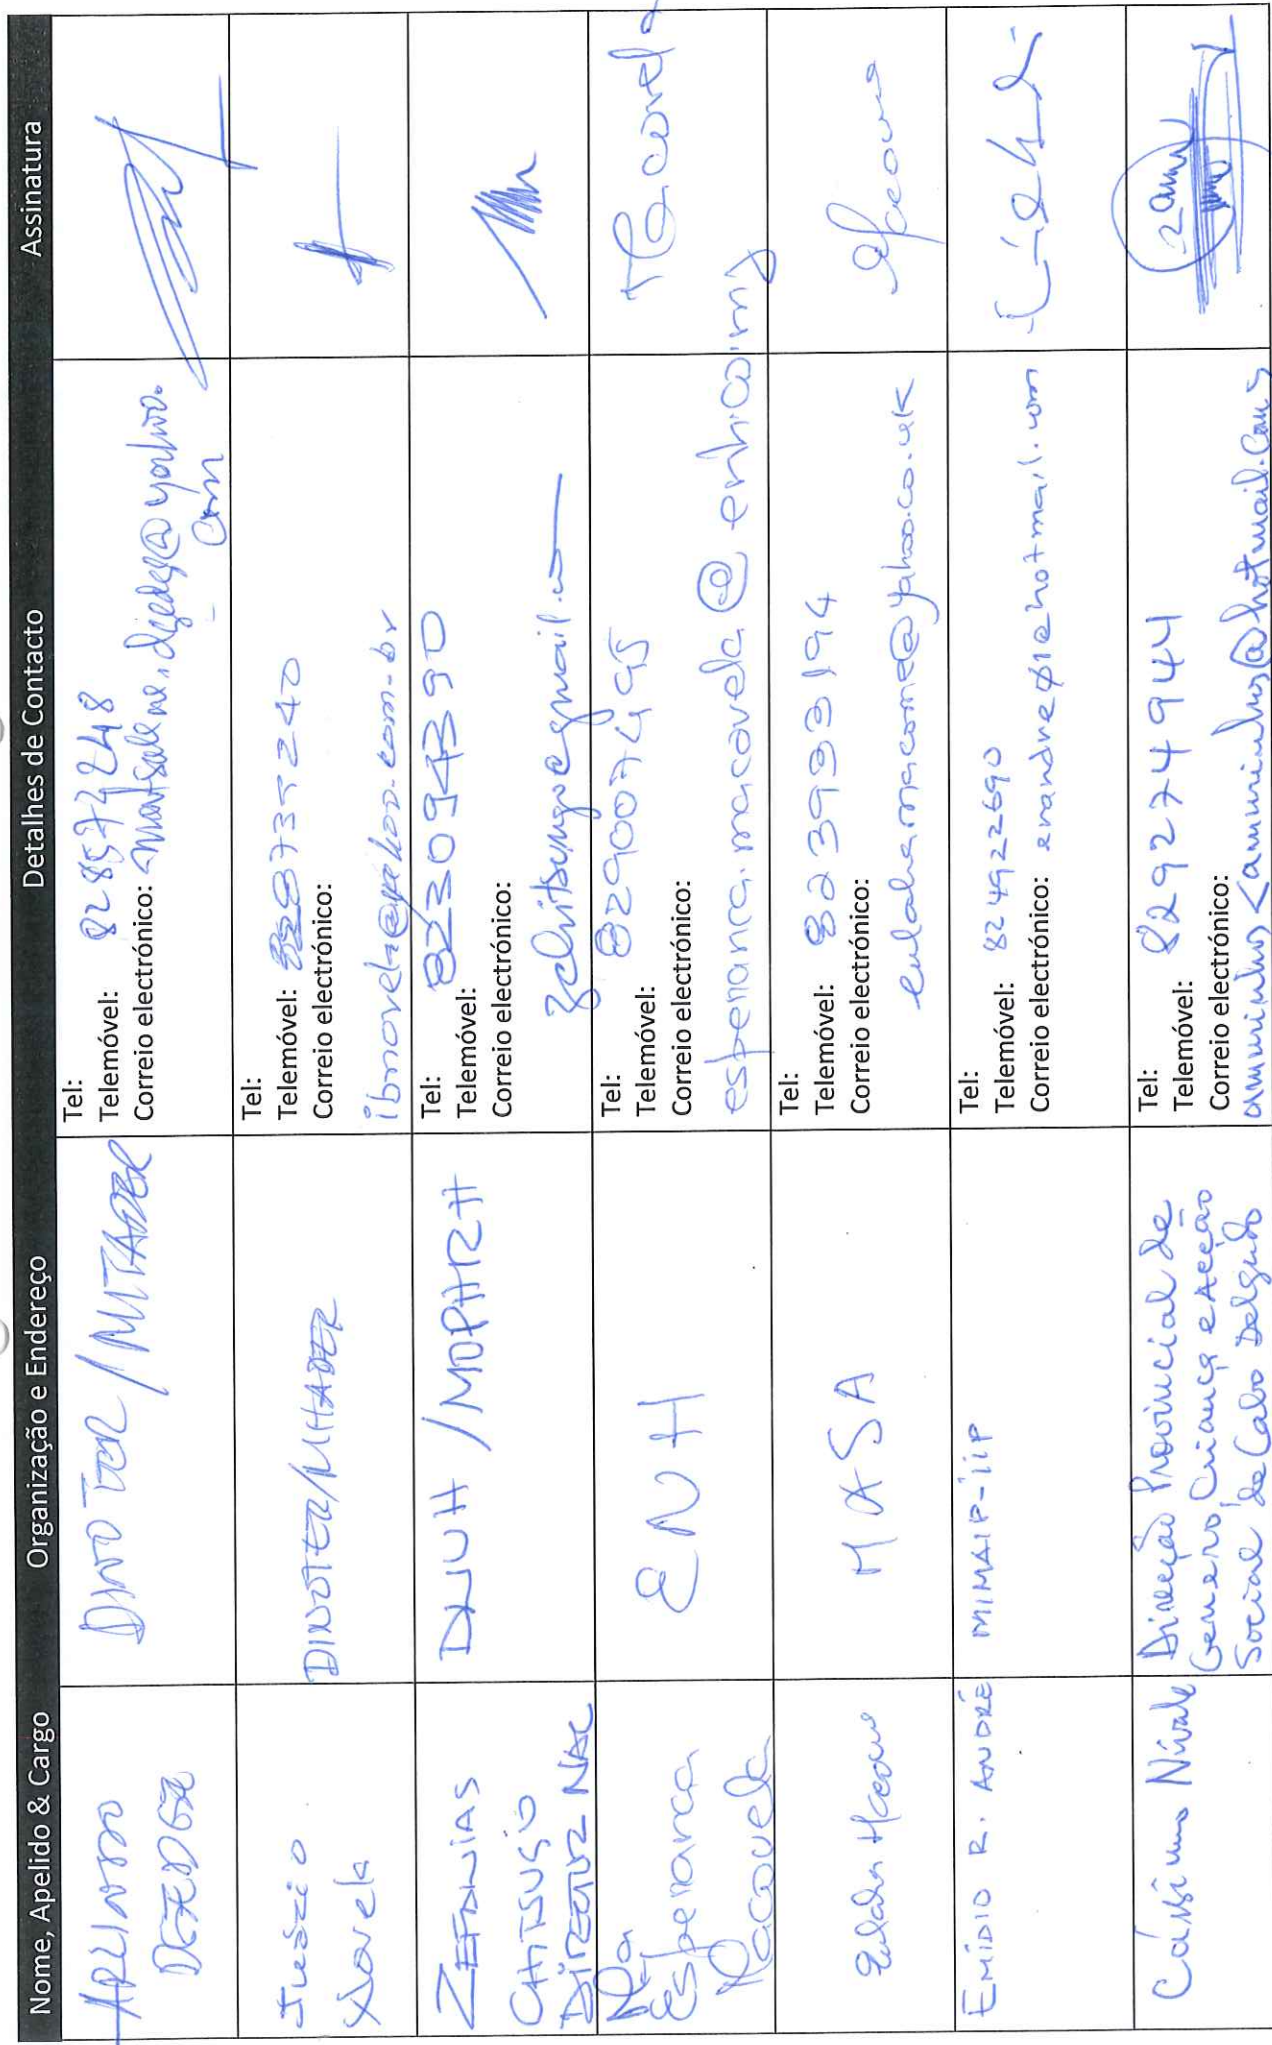 Nome, Apelido & Cargo Organização e Endereço Detalhes de Contacto Assinatura
ARLINDO
DGEDGE
DINOTER/MITADER
Tel:
Telemóvel: 828572248
Correio electrónico:
com
Inázio
Novela
DINOTER/MITADER
Tel:
Telemóvel:
Correio electrónico:
ibnovela@yahoo.com.br
ZEFANIAS
CHITSUGO
DIRECTOR NAC
DNUH/MOPHRH
Tel:
Telemóvel: 823094390
Correio electrónico:
zchitsungo@gmail.co
Ma
Esperanca
Macovela
ENH
Tel:
Telemóvel: 829007495
Correio electrónico:
esperanca.macovela@enh.co.mz
Macovela
Eulalia Macome
MASA
Tel:
Telemóvel: 823933194
Correio electrónico:
eulaliamacome@yahoo.co.uk
EMÍDIO R. ANDRÉ
MIMAIP-iiP
Tel:
Telemóvel: 824922690
Correio electrónico: erandreø1@hotmail.com
Cássimo Nivale
Direcção Provincial de
Genero, Criança e Acção
Social de Cabo Delgado
Tel:
Telemóvel: 829274944
Correio electrónico: